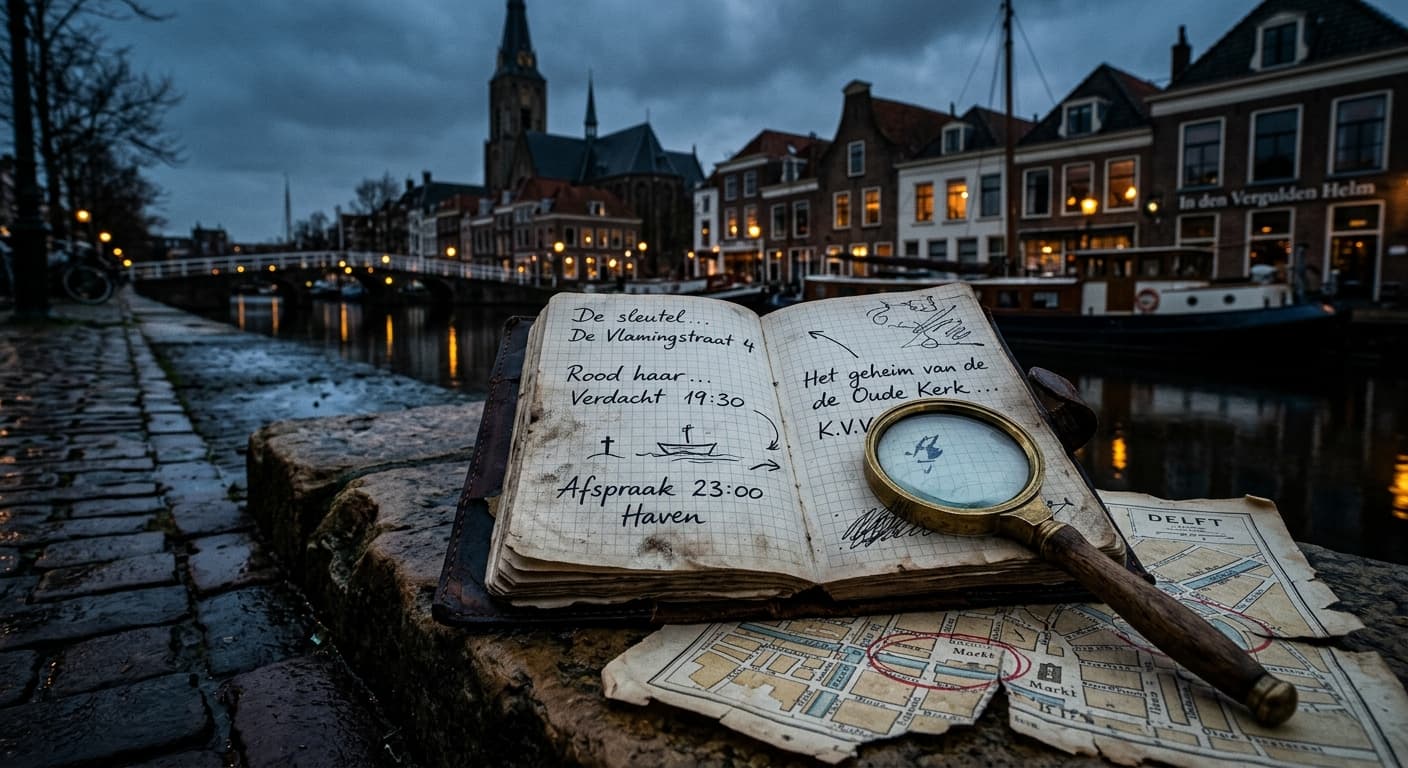 De sleutel...
De Vlamingstraat 4
Rood haar...
Verdacht 19:30
Afspraak 23:00
Haven
Het geheim van de
de Oude Kerk...
K.V.V
In den Vergulden Helm
DELFT
Maekt
Markt